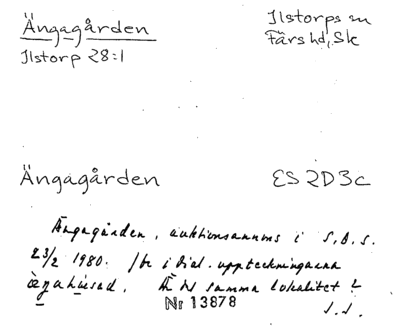 Ängagården
Ilstorps sn
Ilstorp 28:1
Färs hd, Sk
Ängagården
ES 2D3c
Ängagården, auktionsannons i S.D.S.
23/2 1980. i dial. uppteckningarna
Är samma lokalitet?
Nr 13878